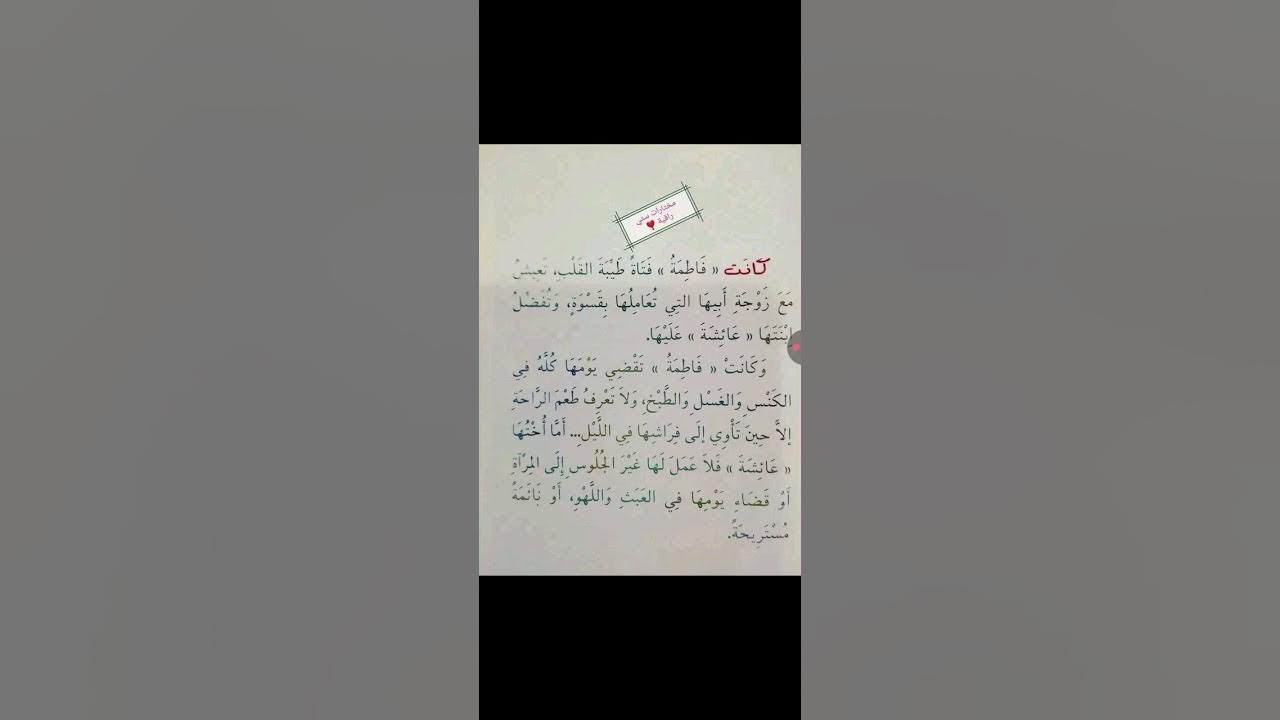 مختارات ستي
راقية
كَانَت « فَاطِمَةُ » فَتَاةً طَيِّبَةَ القَلْبِ، تَعِيشُ
مَعَ زَوْجَةِ أَبِيهَا التِي تُعَامِلُهَا بِقَسْوَةٍ، وَتُفَضِّلُ
اِبْنَتَهَا « عَائِشَةَ » عَلَيْهَا.
وَكَانَتْ « فَاطِمَةُ » تَقْضِي يَوْمَهَا كُلَّهُ فِي
الكَنْسِ وَالغَسْلِ وَالطَّبْخِ، وَلاَ تَعْرِفُ طَعْمَ الرَّاحَةِ
إلاَّ حِينَ تَأْوِي إلَى فِرَاشِهَا فِي اللَّيْلِ... أَمَّا أُخْتُهَا
« عَائِشَةَ » فَلاَ عَمَلَ لَهَا غَيْرَ الجُلُوسِ إِلَى المِرْآةِ
أَوْ قَضَاءِ يَوْمِهَا فِي العَبَثِ وَاللَّهْوِ، أَوْ نَائَمَةُ
مُسْتَرِيحَةٌ.